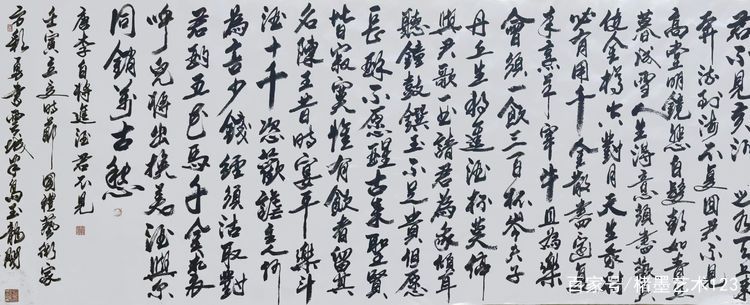 君不見黃河
奔流到海不復回君不見
高堂明鏡悲白髮朝如青
暮成雪人生得意須盡歡
使金樽空對月天生我
必有用千金散盡還復
來烹羊宰牛且為樂
會須一飲三百杯岑夫子
丹丘生將進酒杯莫停
與君歌一曲請君為我傾耳
聽鐘鼓饌玉不足貴但願
長醉不願醒古來聖賢
皆寂寞惟有飲者留其
名陳王昔時宴平樂斗
酒十千恣歡謔主人何
為言少錢徑須沽取對
君酌五花馬千金裘
呼兒將出換美酒與爾
同銷萬古愁
唐李白將進酒君不見
壬寅立夏時節國禮藝術家
書雲城半島玉龍湖
百家号/楮墨艺术123